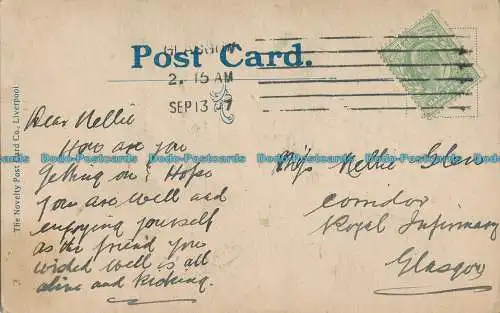 Post Card.
GLASGOW
2. 15 AM
SEP 13 07
The Novelty Post Card Co., Liverpool
Dear Nellie
How are you
getting on? Hope
you are well and
enjoying yourself
as the friend you
wished well is all
alive and kicking.
Miss Nellie Glen
corridor
Royal Infirmary
Glasgow
Dodo-Postcards Dodo-Postcards Dodo-Postcards Dodo-Postcards Dodo-Postcards